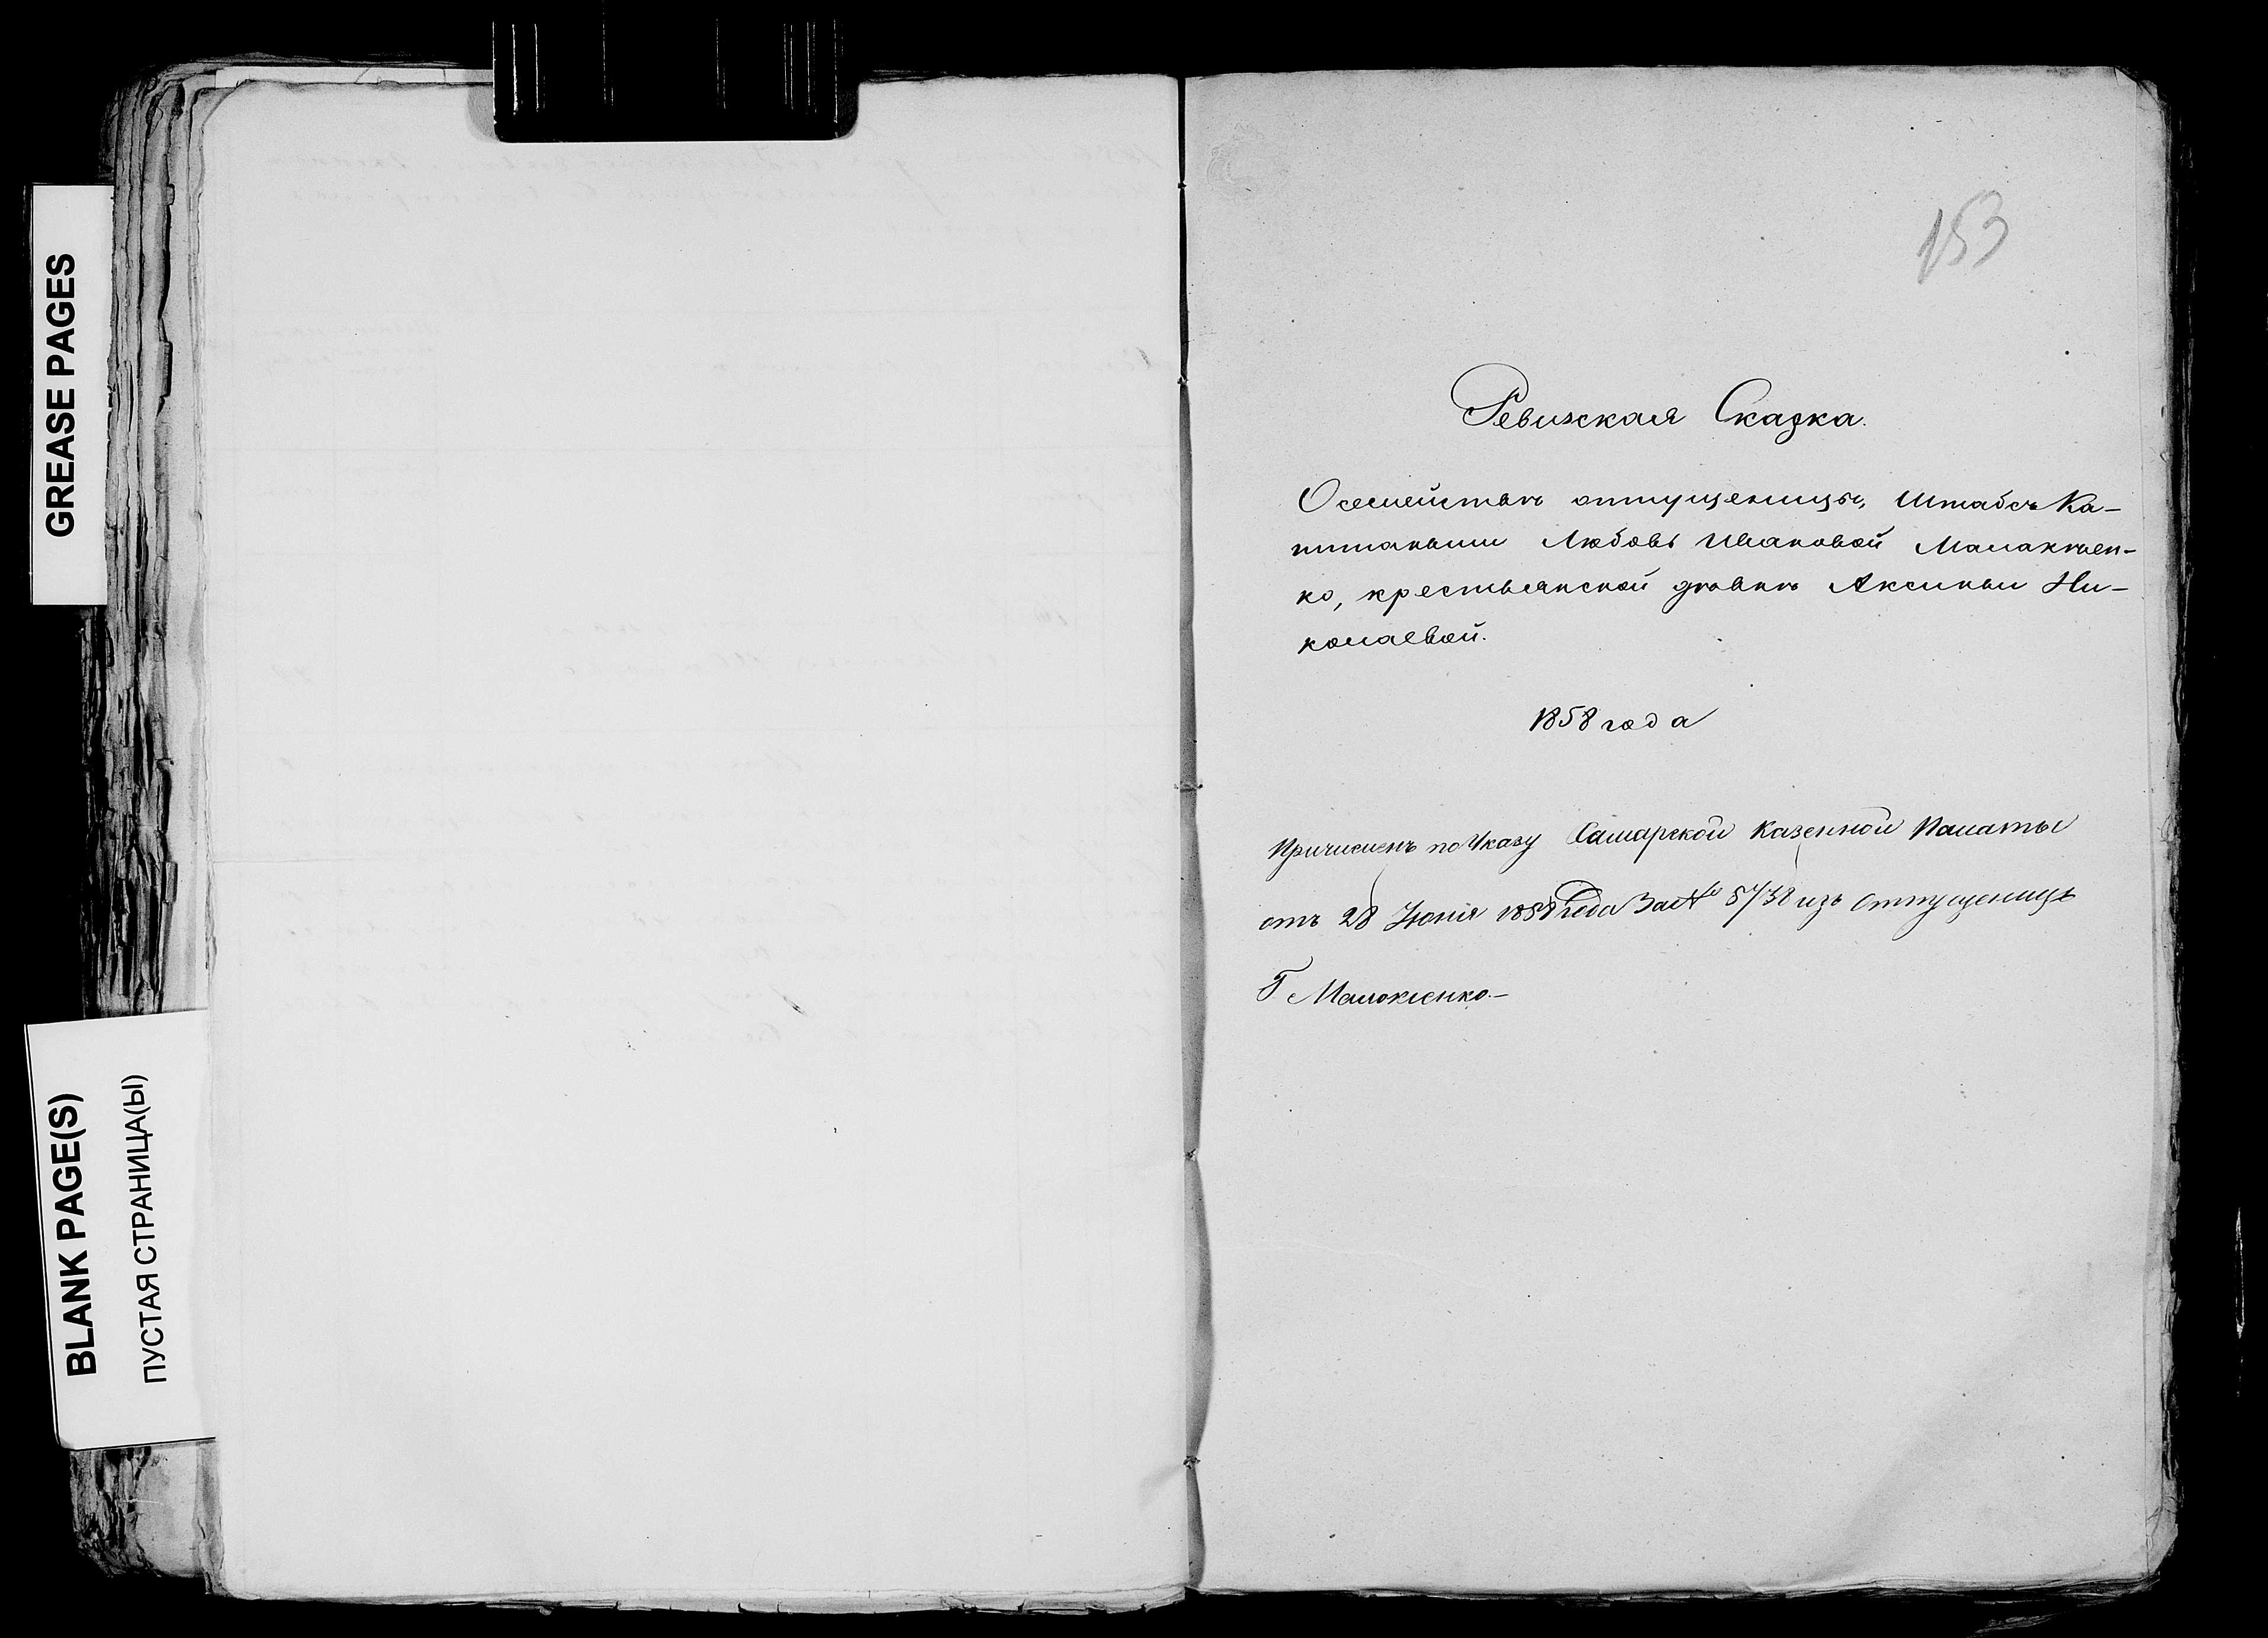 GREASE PAGES
BLANK PAGE(S)
ПУСТАЯ СТРАНИЦА(Ы)
153
Ревизская Сказка.
О семействѣ отпущеницы, Штабсъ Ка-
питаньши Любовь Ивановой Малакѣен-
ко, крестьянской дѣвкѣ Аксиньи Ни-
колаевой.
1858 года
Причисленъ по Указу Самарской Казенной Палаты
отъ 28 Іюня 1858 года За № изъ отпущеницъ
Г Малокіенко.-